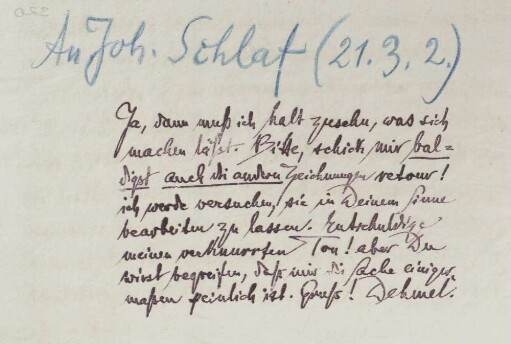 An Joh. Schlaf (21.3.2.)
Ja, dann muß ich halt zusehn, was sich
machen läßt. Bitte, schick mir bal-
digst auch die andern Zeichnungen retour!
ich werde versuchen, sie in Deinem Sinne
bearbeiten zu lassen. Entschuldige
meinen verknurrten Ton! aber Du
wirst begreifen, daß mir die Sache einiger-
maßen peinlich ist. Gruß! Dehmel.